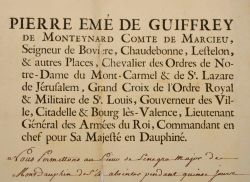 PIERRE EMÉ DE GUIFFREY
DE MONTEYNARD COMTE DE MARCIEU,
Seigneur de Boviere, Chaudebonne, Lestelon,
& autres Places, Chevalier des Ordres de No-
tre-Dame du Mont-Carmel & de St. Lazare
de Jérusalem, Grand Croix de l'Ordre Royal
& Militaire de St. Louis, Gouverneur des Vil-
le, Citadelle & Bourg lès-Valence, Lieutenant
Général des Armées du Roi, Commandant en
chef pour Sa Majesté en Dauphiné.
Nous Permettons au Sieur de Senegra Major de
Montdauphin de s'absenter pendant quinze jours